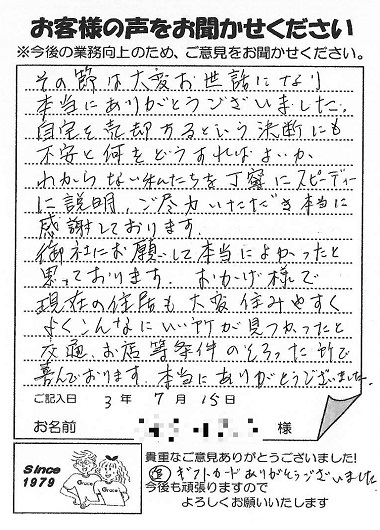 お客様の声をお聞かせください
※今後の業務向上のため、ご意見をお聞かせください。
その節は大変お世話になり
本当にありがとうございました。
自宅を売却するという決断にも
不安と何をどうすればよいか、
わからない私たちを丁寧にスピーディー
に説明、ご尽力いただき本当に
感謝しております。
御社にお願いして本当によかったと
思っております。おかげ様で
現在の住居も大変住みやすく
よくこんなにいい所が見つかったと
交通、お店等条件のそろった所で
喜んでおります。本当にありがとうございました。
ご記入日 3年 7月 15日
お名前 様
Since
1979
Grace
Grace
貴重なご意見ありがとうございました!
ギフトカードありがとうございました
今後も頑張りますので
よろしくお願いいたします